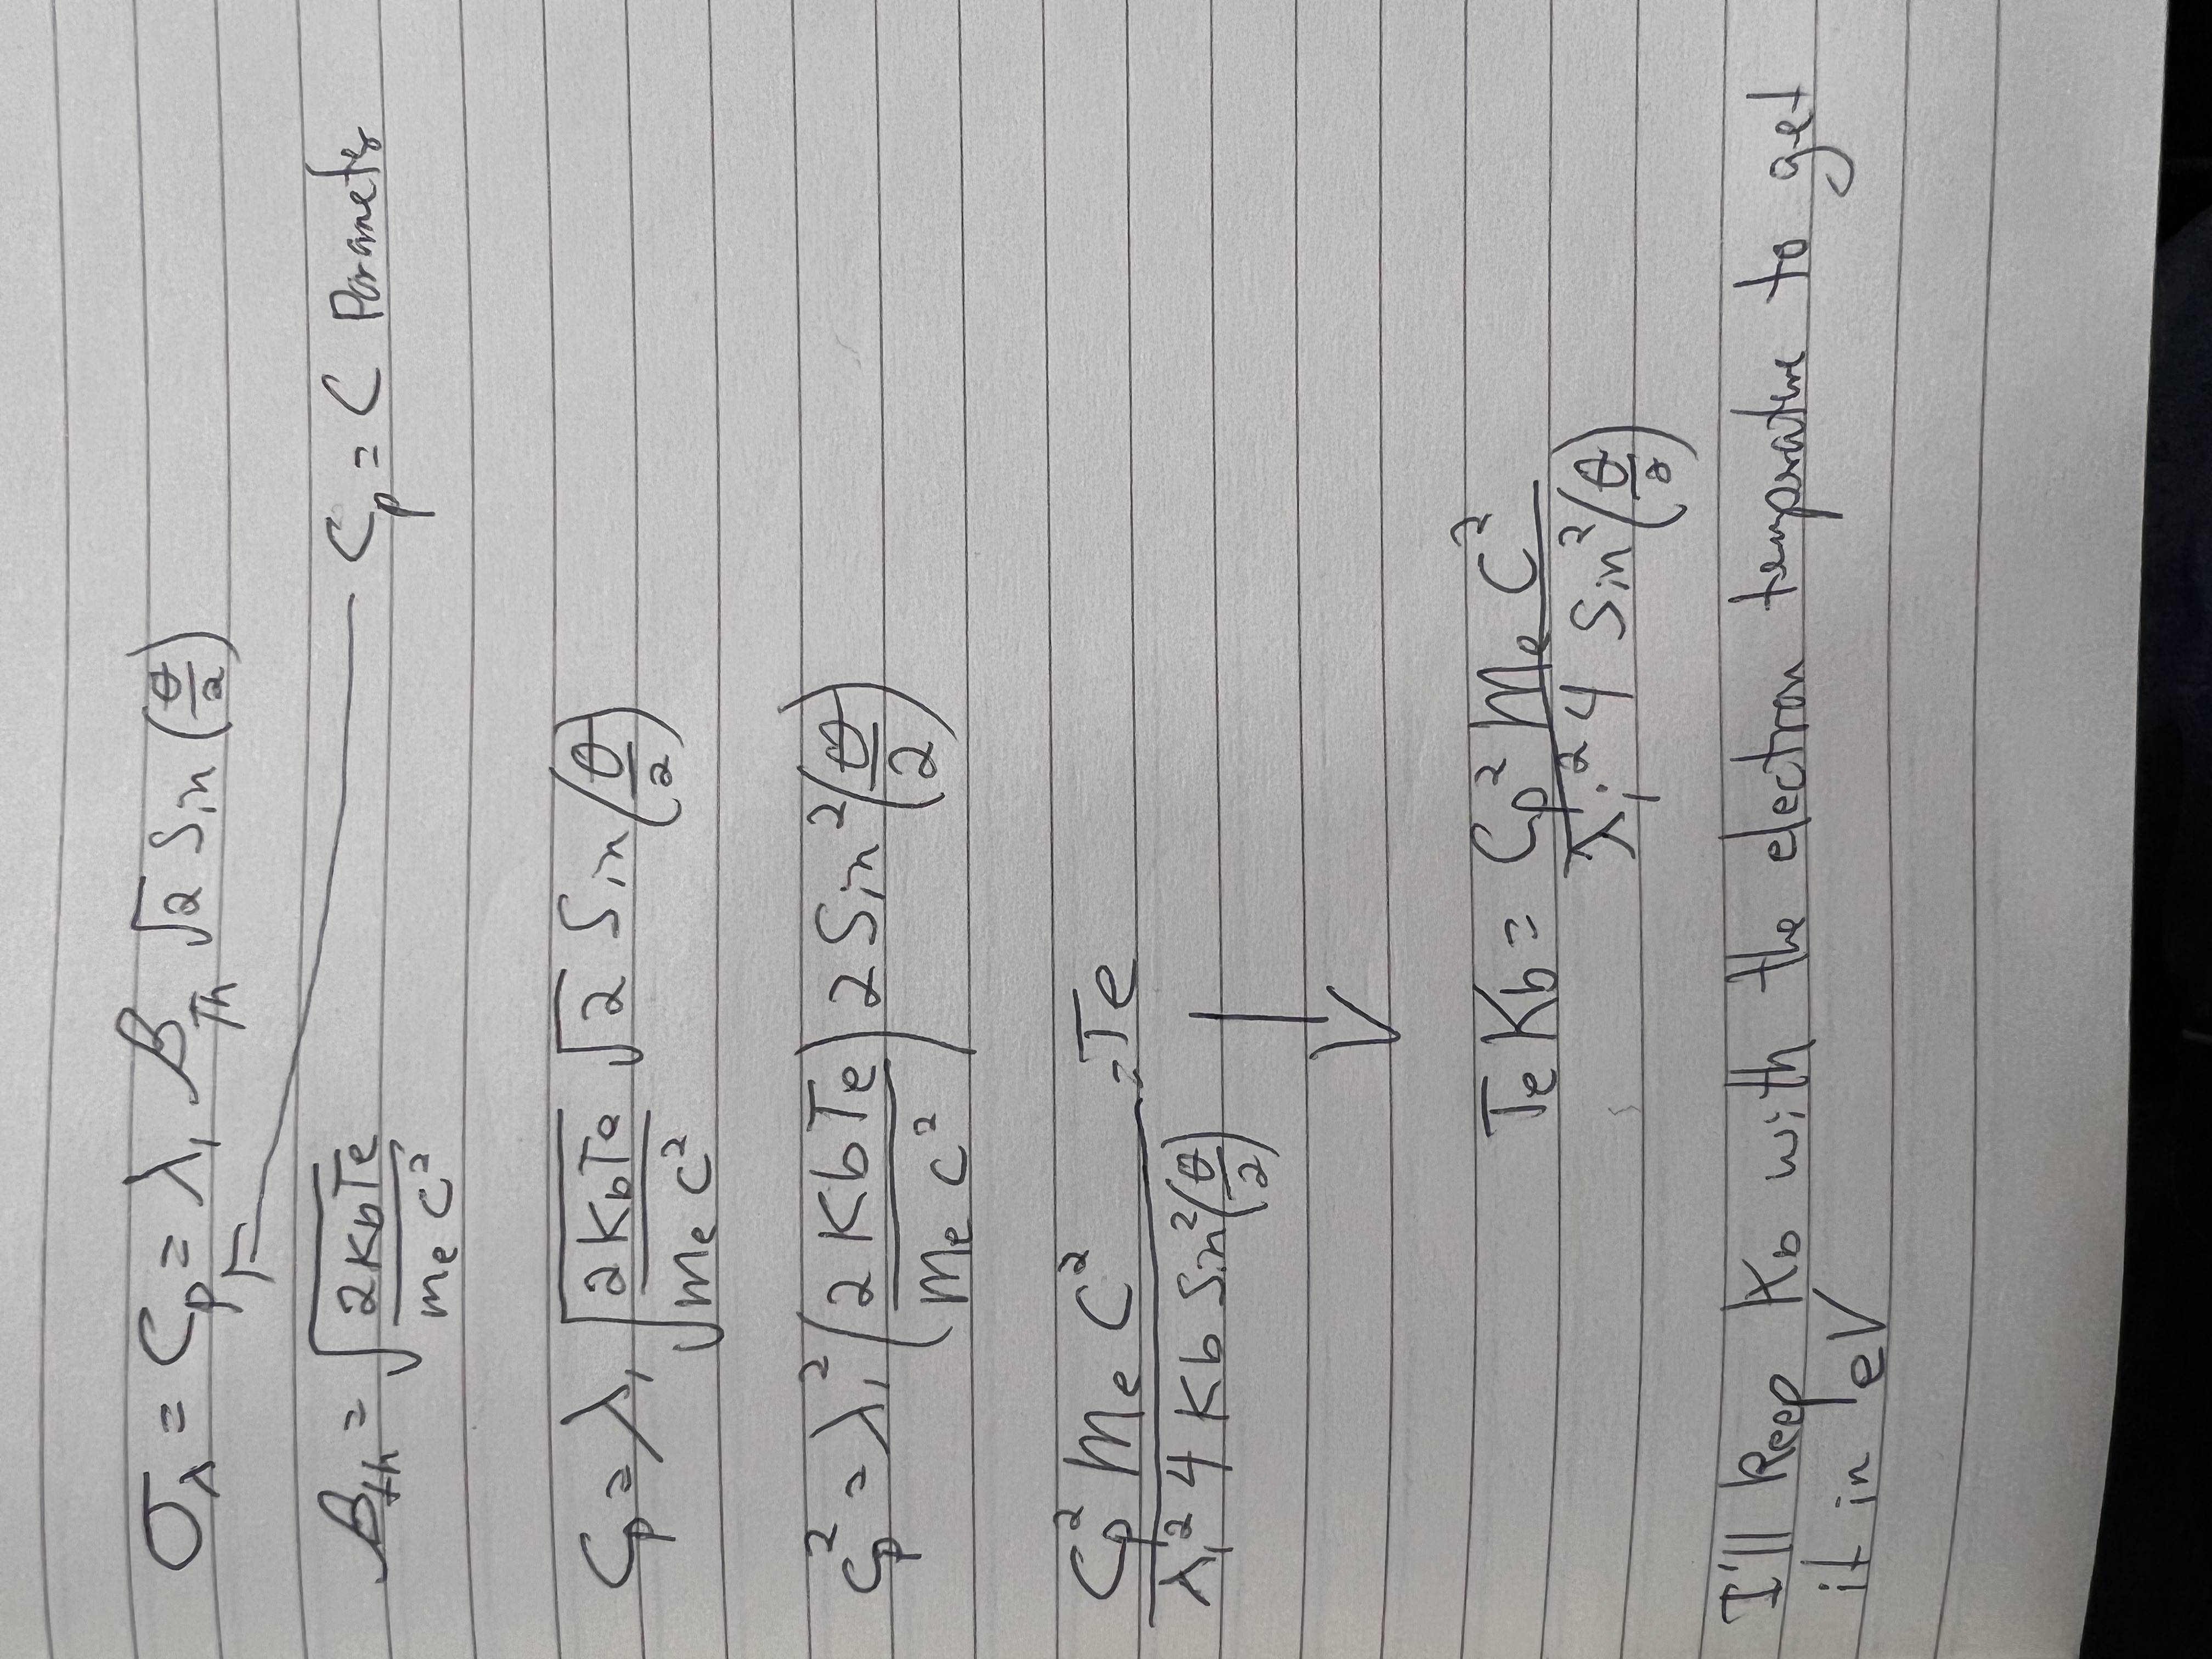 σ_λ = C_p = λ_i β_Th √2 Sin (θ/2)
β_th = √(2KbTe / me C²)
C_p = C Parameter
C_p = λ_i √(2KbTe / me C²) √2 Sin (θ/2)
C_p² = λ_i² (2 KbTe / me C²) 2 Sin² (θ/2)
C_p² me C² / λ_i² 4 Kb Sin² (θ/2) = Te
Te Kb = C_p² me C² / λ_i² 4 Sin² (θ/2)
I'll keep Kb with the electron temperature to get
it in eV